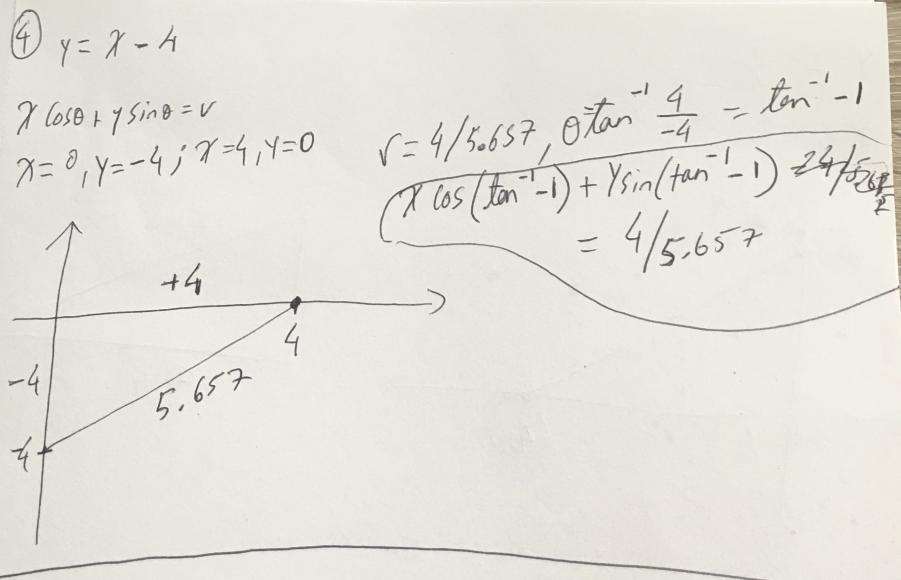 ④ y = x - 4
x cosθ + y sinθ = r
x = 0, y = -4; x = 4, y = 0
r = 4/5.657, θ tan⁻¹ 4/-4 = tan⁻¹ -1
x cos(tan⁻¹ -1) + y sin(tan⁻¹ -1)
= 4/5.657
+4
4
-4
5.657
-4